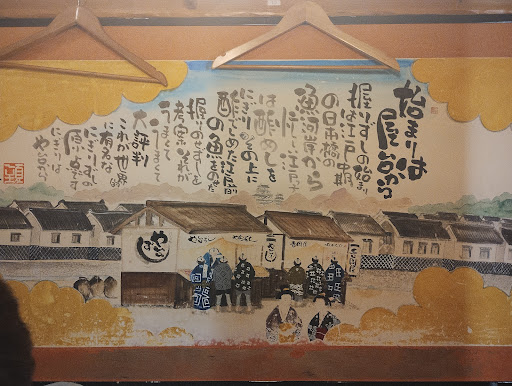 始まりは
屋台から
握りずしの始ま
りは江戸中期
の日本橋の
魚河岸から
忙しい江戸子
は酢めしを
にぎりその上に
酢でしめた江戸前
の魚をのせた
うまくて
大評判
これが世界
に有名な
にぎりずしの
原点です
にぎりは
や台から